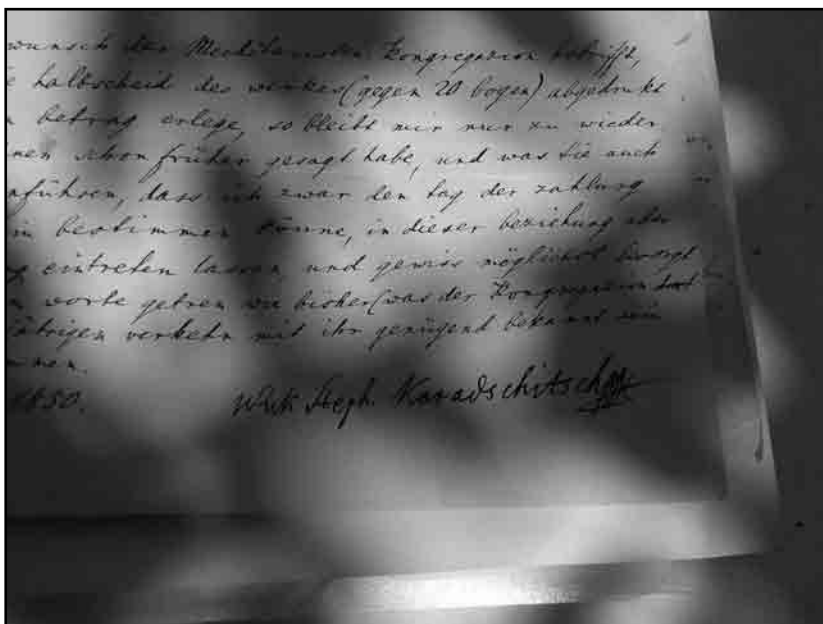 wunsch der Mechitaristen Kongregazion betrifft,
halbscheid des werkes (gegen 20 bogen) abgedrukt
betrag erlege, so bleibt mir nur zu wieder
nen schon früher gesagt habe, und was Sie auch
nführen, dass ich zwar den tag der zahlung
in bestimmen könne, in dieser beziehung aber
g eintreten lassen und gewiss möglichst besorgt
worte getreu wie bisher (was der Kongregazion
jährigen verkehr mit ihr genügend bekannt sein
mmen.
1850. Wuk Steph. Karadschitsch